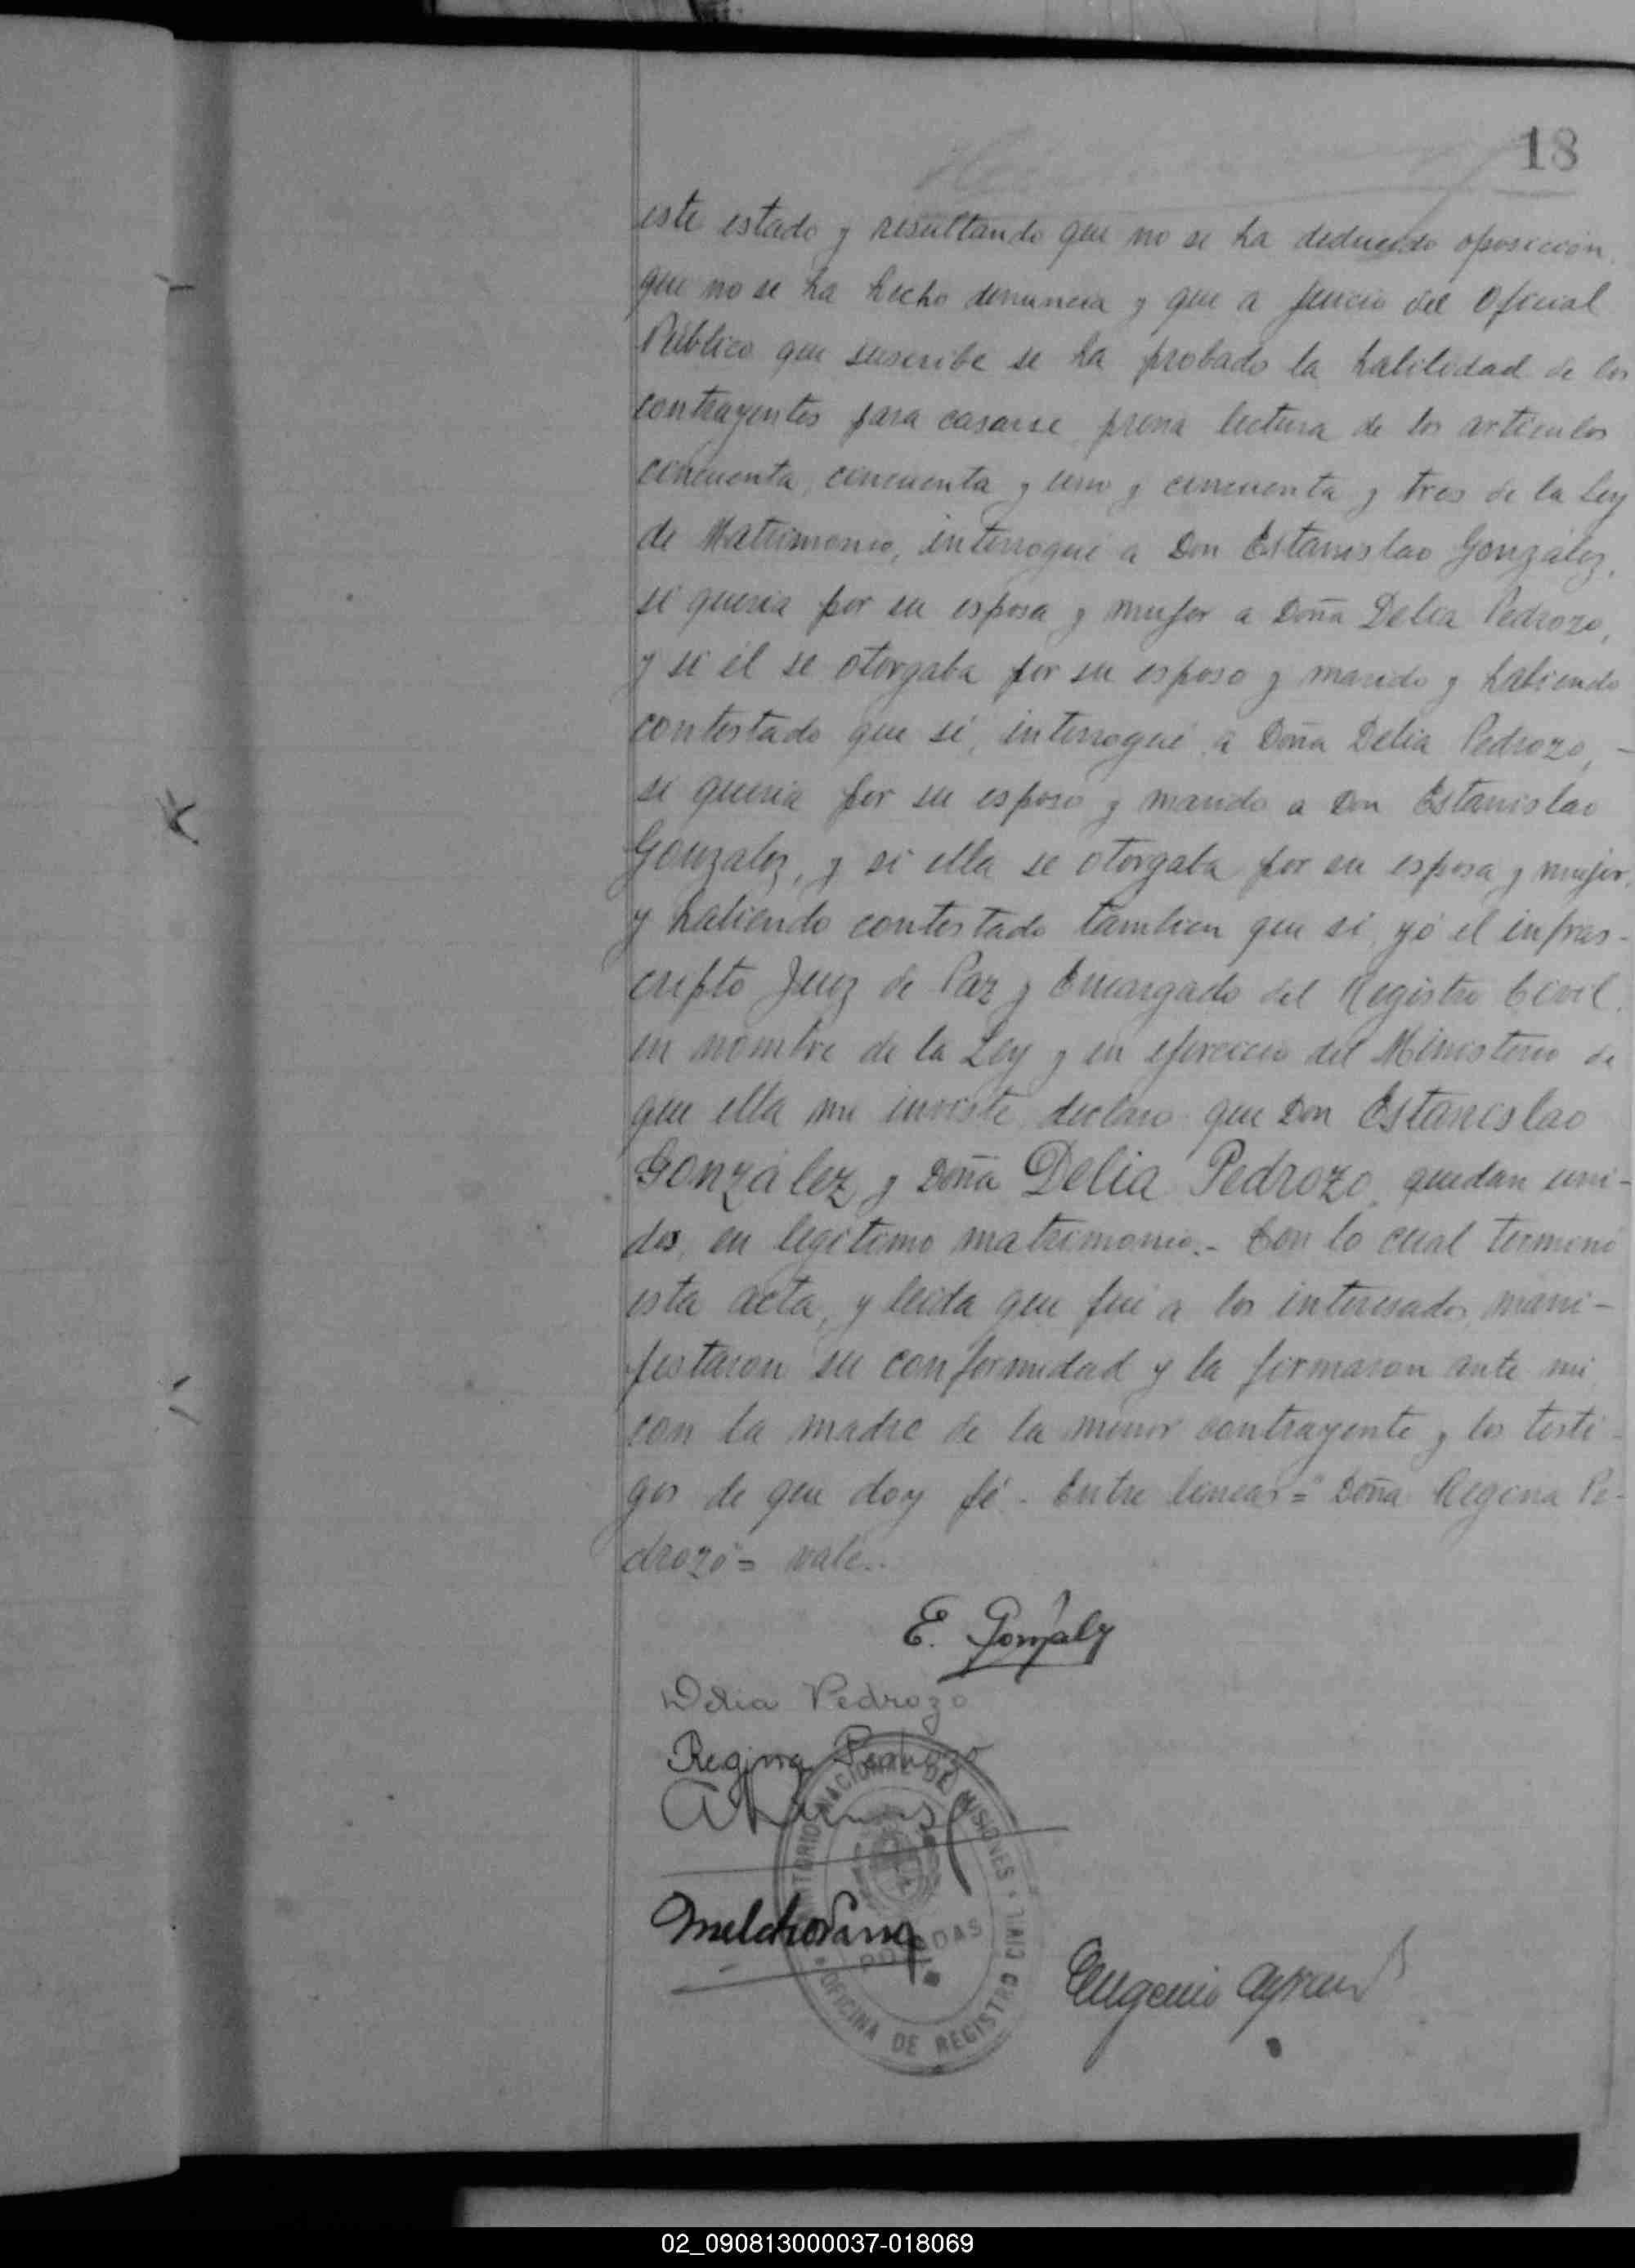 18
este estado y resultando que no se ha deducido oposición,
que no se ha hecho denuncia y que a juicio del Oficial
Público que suscribe se ha probado la habilidad de los
contrayentes para casarse, previa lectura de los artículos
cincuenta, cincuenta y uno y cincuenta y tres de la Ley
de Matrimonio, interrogué a Don Estanislao González,
si queria por su esposa y mujer a Doña Delia Pedrozo,
y si él se otorgaba por su esposo y marido y habiendo
contestado que sí, interrogué a Doña Delia Pedrozo, -
si queria por su esposo y marido a Don Estanislao
González, y si ella se otorgaba por su esposa y mujer,
y habiendo contestado tambien que si, yó el infras-
cripto Juez de Paz y Encargado del Registro Civil,
en nombre de la Ley y en ejercicio del Ministerio de
que ella me inviste, declaro que Don Estanislao
González y Doña Delia Pedrozo, quedan uni-
dos, en legítimo matrimonio.- Con lo cual terminó
esta acta, y leida que fué a los interesados, mani-
festaron su conformidad y la firmaron ante mi
con la madre de la menor contrayente y los testi-
gos de que doy fé.- Entre lineas = "Doña Regina Pe-
drozo" = vale.-
E. Gonzalez
Delia Pedrozo
Regina Pedrozo
TERRITORIO NACIONAL DE MISIONES
POSADAS
OFICINA DE REGISTRO CIVIL
Eugenio
02_090813000037-018069